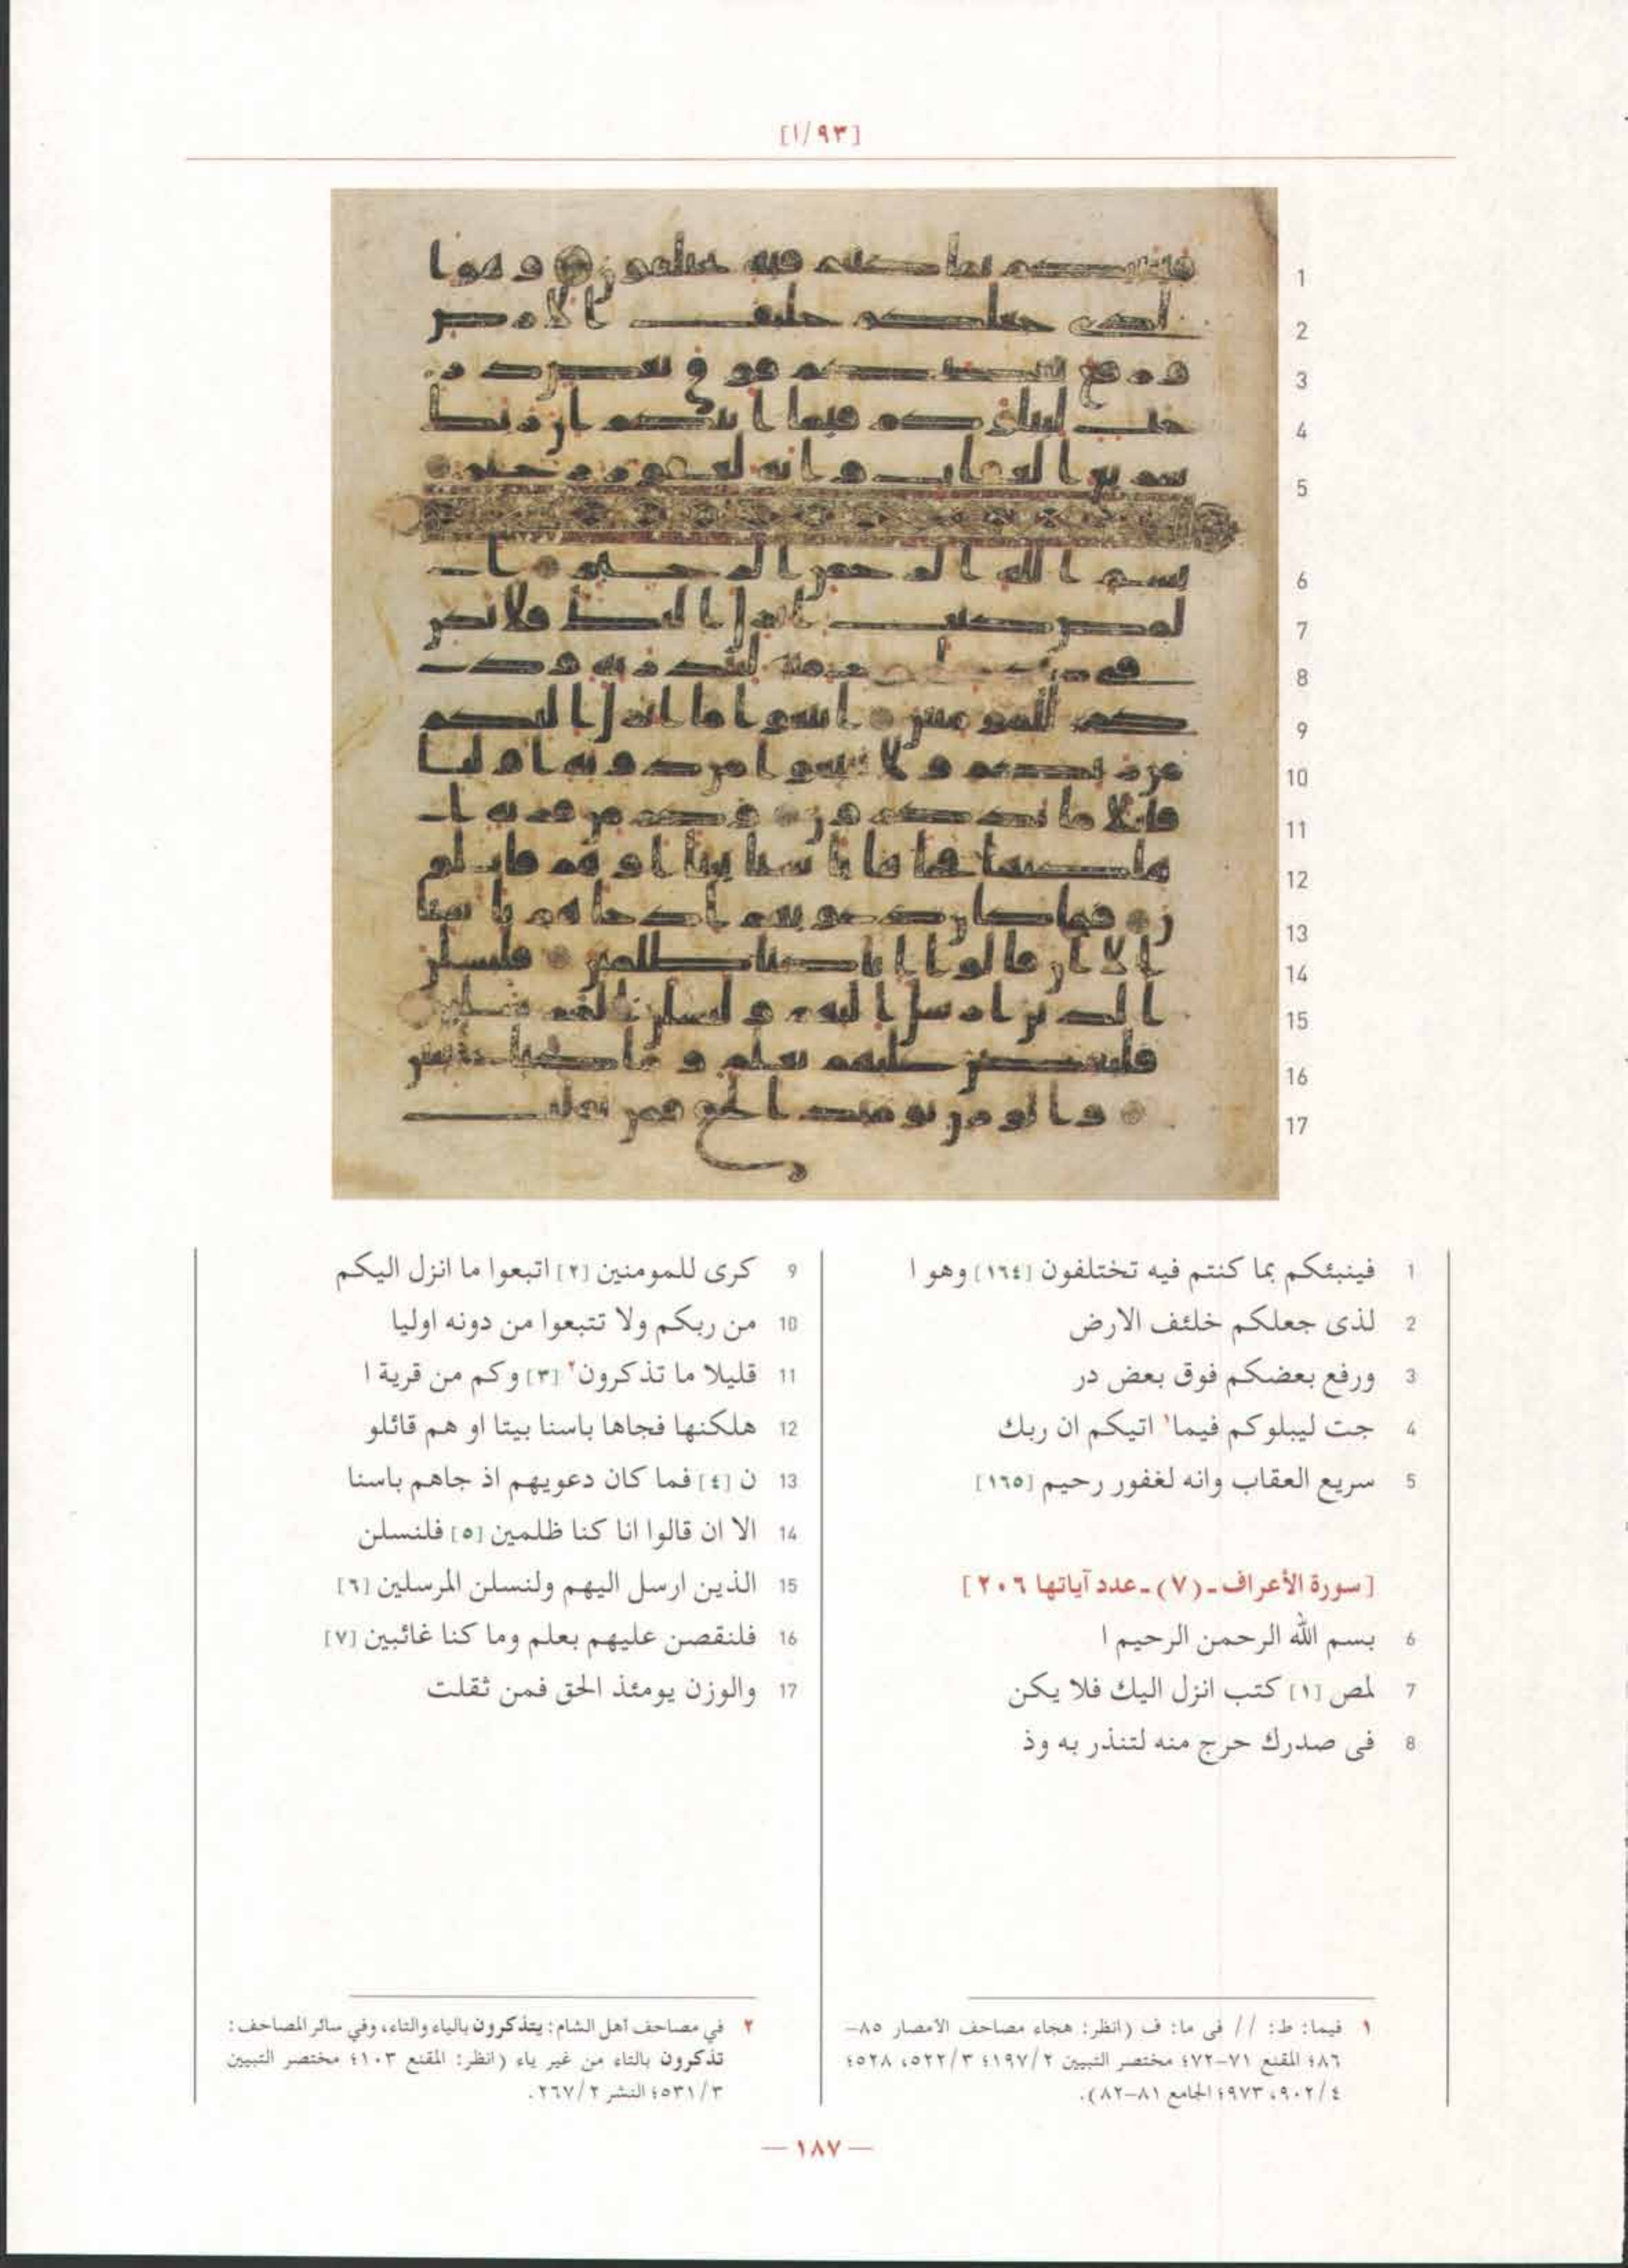 [١/٩٣]
1
2
3
4
5
6
7
8
9
10
11
12
13
14
15
16
17
1 فينبئكم بما كنتم فيه تختلفون [١٦٤] وهو ا
2 لذى جعلكم خلئف الارض
3 ورفع بعضكم فوق بعض در
4 جت ليبلوكم فيما١ اتيكم ان ربك
5 سريع العقاب وانه لغفور رحيم [١٦٥]
[سورة الأعراف ـ (٧) ـ عدد آياتها ٢٠٦]
6 بسم الله الرحمن الرحيم ا
7 لمص [١] كتب انزل اليك فلا يكن
8 فى صدرك حرج منه لتنذر به وذ
9 كرى للمومنين [٢] اتبعوا ما انزل اليكم
10 من ربكم ولا تتبعوا من دونه اوليا
11 قليلا ما تذكرون٢ [٣] وكم من قرية ا
12 هلكنها فجاها باسنا بيتا او هم قائلو
13 ن [٤] فما كان دعويهم اذ جاهم باسنا
14 الا ان قالوا انا كنا ظلمين [٥] فلنسلن
15 الذين ارسل اليهم ولنسلن المرسلين [٦]
16 فلنقصن عليهم بعلم وما كنا غائبين [٧]
17 والوزن يومئذ الحق فمن ثقلت
١ فيما: ط: // فى ما: ف (انظر: هجاء مصاحف الأمصار ٨٥–
٨٦؛ المقنع ٧١–٧٢؛ مختصر التبيين ١٩٧/٢؛ ٥٢٢/٣، ٥٢٨؛
٩٠٢/٤، ٩٧٣؛ الجامع ٨١–٨٢).
٢ في مصاحف أهل الشام: يتذكرون بالياء والتاء، وفي سائر المصاحف:
تذكرون بالتاء من غير ياء (انظر: المقنع ١٠٣؛ مختصر التبيين
٥٣١/٣؛ النشر ٢٦٧/٢.
— ١٨٧ —